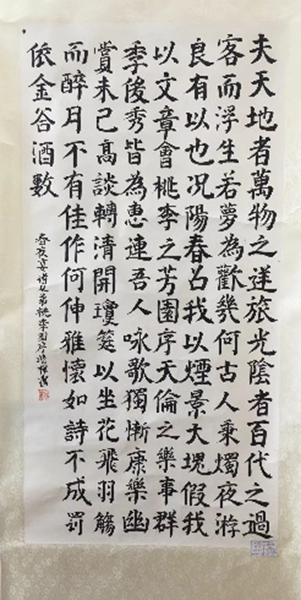 夫天地者萬物之逆旅光陰者百代之過
客而浮生若夢為歡幾何古人秉燭夜游
良有以也况陽春召我以煙景大塊假我
以文章會桃李之芳園序天倫之樂事群
季俊秀皆為惠連吾人咏歌獨慚康樂幽
賞未已高談轉清開瓊筵以坐花飛羽觴
而醉月不有佳作何伸雅懷如詩不成罰
依金谷酒數
春夜宴諸从弟桃李園序